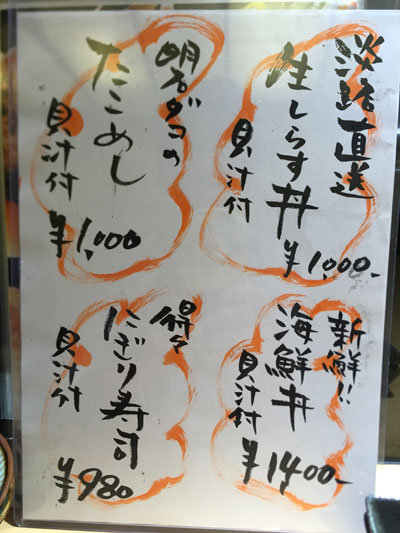 淡路直送
生しらす丼
貝汁付
¥1,000-
明石ダコの
たこめし
貝汁付
¥1,000
新鮮!!
海鮮丼
貝汁付
¥1400-
得々
にぎり寿司
貝汁付
¥980